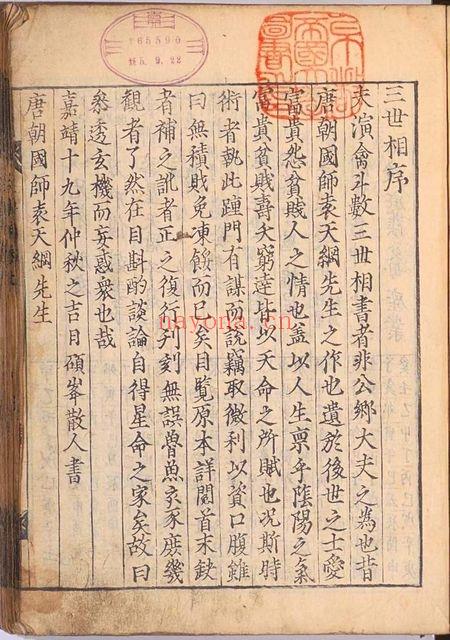 三世相序
夫演禽斗數三世相書者非公卿大夫之為也昔
唐朝國師袁天綱先生之作也遺於後世之士愛
富貴怨貧賤人之情也盖以人生禀乎陰陽之氣
富貴貧賤壽夭窮達皆以天命之所賦也况斯時
術者執此踵門有謀而説竊取微利以資口腹雖
曰無積賍免凍餒而已矣目覧原本詳閱首末缺
者補之訛者正之復行刋刻無誤魯魚亥豕庶幾
觀者了然在目斟酌談論自得星命之家矣故曰
叅透玄機而妄惑衆也哉
嘉靖十九年仲秋之吉日碩峯散人書
唐朝國師袁天綱先生
165590
昭5.9.22
nayona.cn